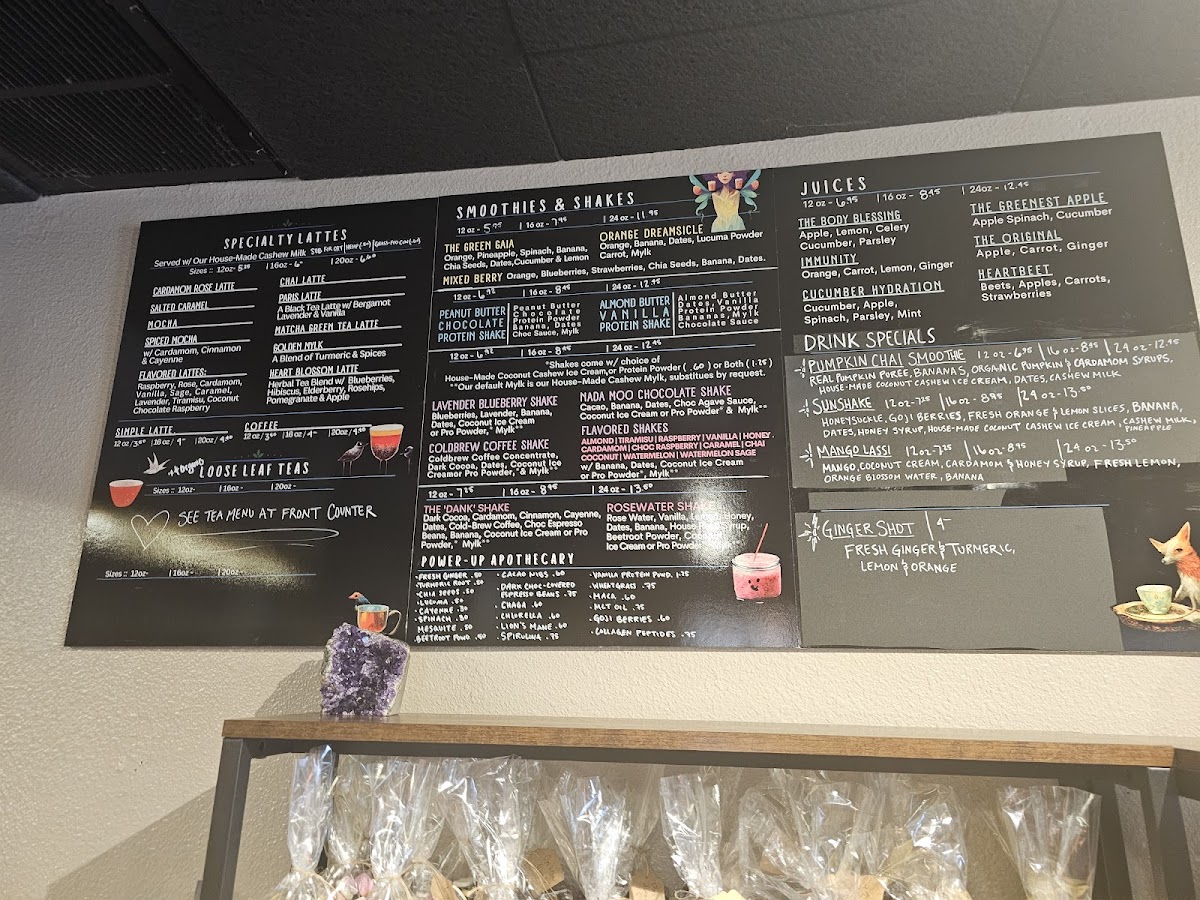 SPECIALTY LATTES
Served w/ Our House-Made Cashew Milk
Sizes :: 12oz- | 16oz - | 20oz -
CARDAMOM ROSE LATTE
SALTED CARAMEL
MOCHA
SPICED MOCHA
w/ Cardamom, Cinnamon
& Cayenne
FLAVORED LATTES:
Raspberry, Rose, Cardamom,
Vanilla, Sage, Caramel,
Lavender, Tiramisu, Coconut
Chocolate Raspberry
CHAI LATTE
PARIS LATTE
A Black Tea Latte w/ Bergamot
Lavender & Vanilla
MATCHA GREEN TEA LATTE
GOLDEN MYLK
A Blend of Turmeric & Spices
HEART BLOSSOM LATTE
Herbal Tea Blend w/ Blueberries,
Hibiscus, Elderberry, Rosehips,
Pomegranate & Apple
SIMPLE LATTE
12 oz / 16 oz / 4- 20oz /
COFFEE
12 oz / 16 oz / 4- 20oz /
LOOSE LEAF TEAS
Sizes :: 12oz- | 16oz - | 20oz -
SEE TEA MENU AT FRONT COUNTER
Sizes :: 12oz- | 16oz - | 20oz -
SMOOTHIES & SHAKES
12 oz - 5.95 | 16oz - 7.95 | 24 oz - 11.95
THE GREEN GAIA
Orange, Pineapple, Spinach, Banana,
Chia Seeds, Dates,Cucumber & Lemon
ORANGE DREAMSICLE
Orange, Banana, Dates, Lucuma Powder
Carrot, Mylk
MIXED BERRY Orange, Blueberries, Strawberries, Chia Seeds, Banana, Dates.
12 oz - 6.95 | 16oz - 8.95 | 24 oz - 12.95
PEANUT BUTTER
CHOCOLATE
PROTEIN SHAKE
Peanut Butter
Chocolate
Protein Powder
Banana, Dates
Choc Sauce, Mylk
ALMOND BUTTER
VANILLA
PROTEIN SHAKE
Almond Butter
Dates, Vanilla
Protein Powder
Bananas, Mylk
Chocolate Sauce
12 oz - 6.95 | 16oz - 8.95 | 24 oz - 12.95
*Shakes come w/ choice of
House-Made Coconut Cashew Ice Cream,or Protein Powder ( .60 ) or Both (1.75)
**Our default Mylk is our House-Made Cashew Mylk, substitues by request.
LAVENDER BLUEBERRY SHAKE
Blueberries, Lavender, Banana,
Dates, Coconut Ice Cream
or Pro Powder,* Mylk**
COLDBREW COFFEE SHAKE
Coldbrew Coffee Concentrate,
Dark Cocoa, Dates, Coconut Ice
Creamor Pro Powder,* & Mylk**
NADA MOO CHOCOLATE SHAKE
Cacao, Banana, Dates, Choc Agave Sauce,
Coconut Ice Cream or Pro Powder* & Mylk**
FLAVORED SHAKES
ALMOND | TIRAMISU | RASPBERRY | VANILLA | HONEY
CARDAMOM | CHOC RASPBERRY | CARAMEL | CHAI
COCONUT | WATERMELON | WATERMELON SAGE
w/ Banana, Dates, Coconut Ice Cream
or Pro Powder* & Mylk**
12 oz - 7.25 | 16oz - 8.95 | 24 oz - 13.50
THE 'DANK' SHAKE
Dark Cocoa, Cardamom, Cinnamon, Cayenne,
Dates, Cold-Brew Coffee, Choc Espresso
Beans, Banana, Coconut Ice Cream or Pro
Powder,* Mylk**
ROSEWATER SHAKE
Rose Water, Vanilla, Honey,
Dates, Banana, Syrup,
Beetroot Powder,
Ice Cream or Pro Powder
POWER-UP APOTHECARY
- FRESH GINGER .50
- TURMERIC ROOT .50
- CHIA SEEDS .50
- LUCUMA .50
- CAYENNE .30
- SPINACH .30
- MESQUITE .50
- BEETROOT POWD. .50
- CACAO NIBS .60
- DARK CHOC-COVERED
ESPRESSO BEANS .75
- CHAGA .60
- CHLORELLA .60
- LION'S MANE .60
- SPIRULINA .75
- VANILLA PROTEIN POWD. 1.25
- WHEATGRASS .75
- MACA .60
- MCT OIL .75
- GOJI BERRIES .60
- COLLAGEN PEPTIDES .75
JUICES
12 oz - 6.95 | 16 oz - 8.95 | 24oz - 12.95
THE BODY BLESSING
Apple, Lemon, Celery
Cucumber, Parsley
IMMUNITY
Orange, Carrot, Lemon, Ginger
CUCUMBER HYDRATION
Cucumber, Apple,
Spinach, Parsley, Mint
THE GREENEST APPLE
Apple Spinach, Cucumber
THE ORIGINAL
Apple, Carrot, Ginger
HEARTBEET
Beets, Apples, Carrots,
Strawberries
DRINK SPECIALS
PUMPKIN CHAI SMOOTHE 12oz-6.95 | 16oz-8.95 | 24oz-12.95
REAL PUMPKIN PUREE, BANANAS, ORGANIC PUMPKIN & CARDAMOM SYRUPS,
HOUSE-MADE COCONUT CASHEW ICE CREAM, DATES, CASHEW MILK
SUNSHAKE 12oz-7.25 | 16oz-8.95 | 24oz-13.50
HONEYSUCKLE, GOJI BERRIES, FRESH ORANGE & LEMON SLICES, BANANA,
DATES, HONEY SYRUP, HOUSE-MADE COCONUT CASHEW ICE CREAM, CASHEW MILK,
PINEAPPLE
MANGO LASSI 12oz-7.25 | 16oz-8.95 | 24oz-13.50
MANGO, COCONUT CREAM, CARDAMOM & HONEY SYRUP, FRESH LEMON,
ORANGE BLOSSOM WATER, BANANA
GINGER SHOT | 4-
FRESH GINGER & TURMERIC,
LEMON & ORANGE